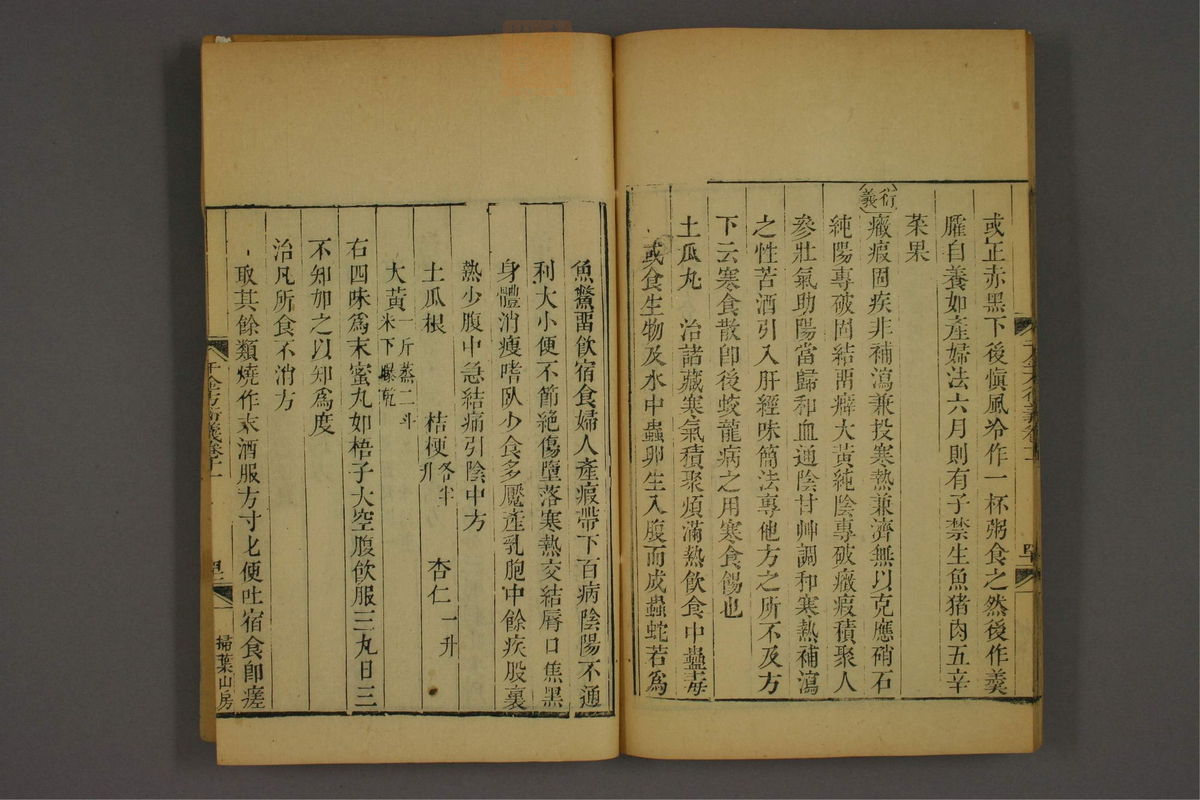 或正赤黑下後愼風冷作一杯粥食之然後作羹
臛自養如產婦法六月則有子禁生魚猪肉五辛
菜果
衍義
癥瘕固疾非補瀉兼投寒熱兼濟無以克應硝石
純陽專破固結畱癖大黃純陰專破癥瘕積聚人
參壯氣助陽當歸和血通陰甘艸調和寒熱補瀉
之性苦酒引入肝經味簡法專他方之所不及方
下云寒食散卽後蛟龍病之用寒食餳也
土瓜丸 治諸藏寒氣積聚煩滿熱飲食中蠱毒
或食生物及水中蟲卵生入腹而成蟲蛇若爲
魚鱉畱飲宿食婦人產瘕帶下百病陰陽不通
利大小便不節絕傷墮落寒熱交結脣口焦黑
身體消瘦嗜臥少食多魘產乳胞中餘疾股裏
熱少腹中急結痛引陰中方
土瓜根 桔梗各半升 杏仁一升
大黃一斤蒸二斗米下曝乾
右四味爲末蜜丸如梧子大空腹飲服三丸日三
不知加之以知爲度
治凡所食不消方
取其餘類燒作末酒服方寸匕便吐宿食卽瘥
千金方衍義卷十一
掃葉山房